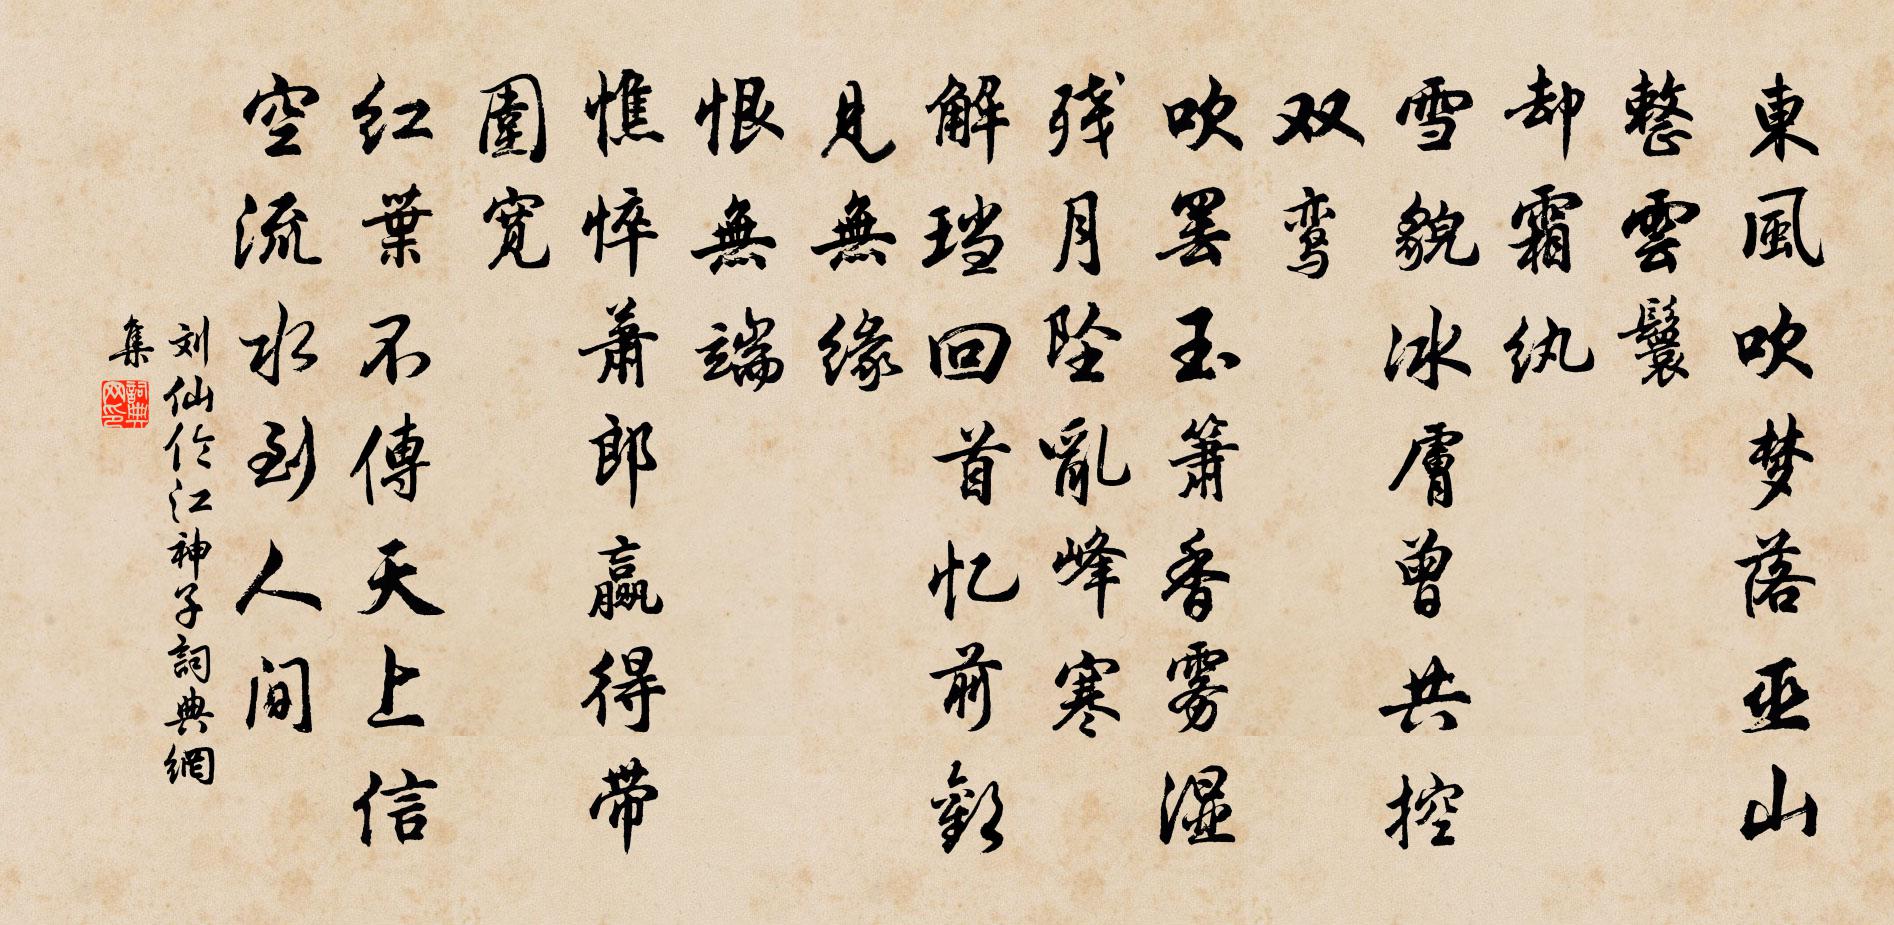 東風吹梦落巫山
整雲鬟
却霜纨
雪貌冰膚曾共控
双鸾
吹罢玉箫香雾湿
残月坠亂峰寒
解珰回首忆前歡
見無緣
恨無端
憔悴萧郎赢得带
圍宽
红葉不傳天上信
空流水到人间
刘仙伦江神子詞典網
集
詞典网印